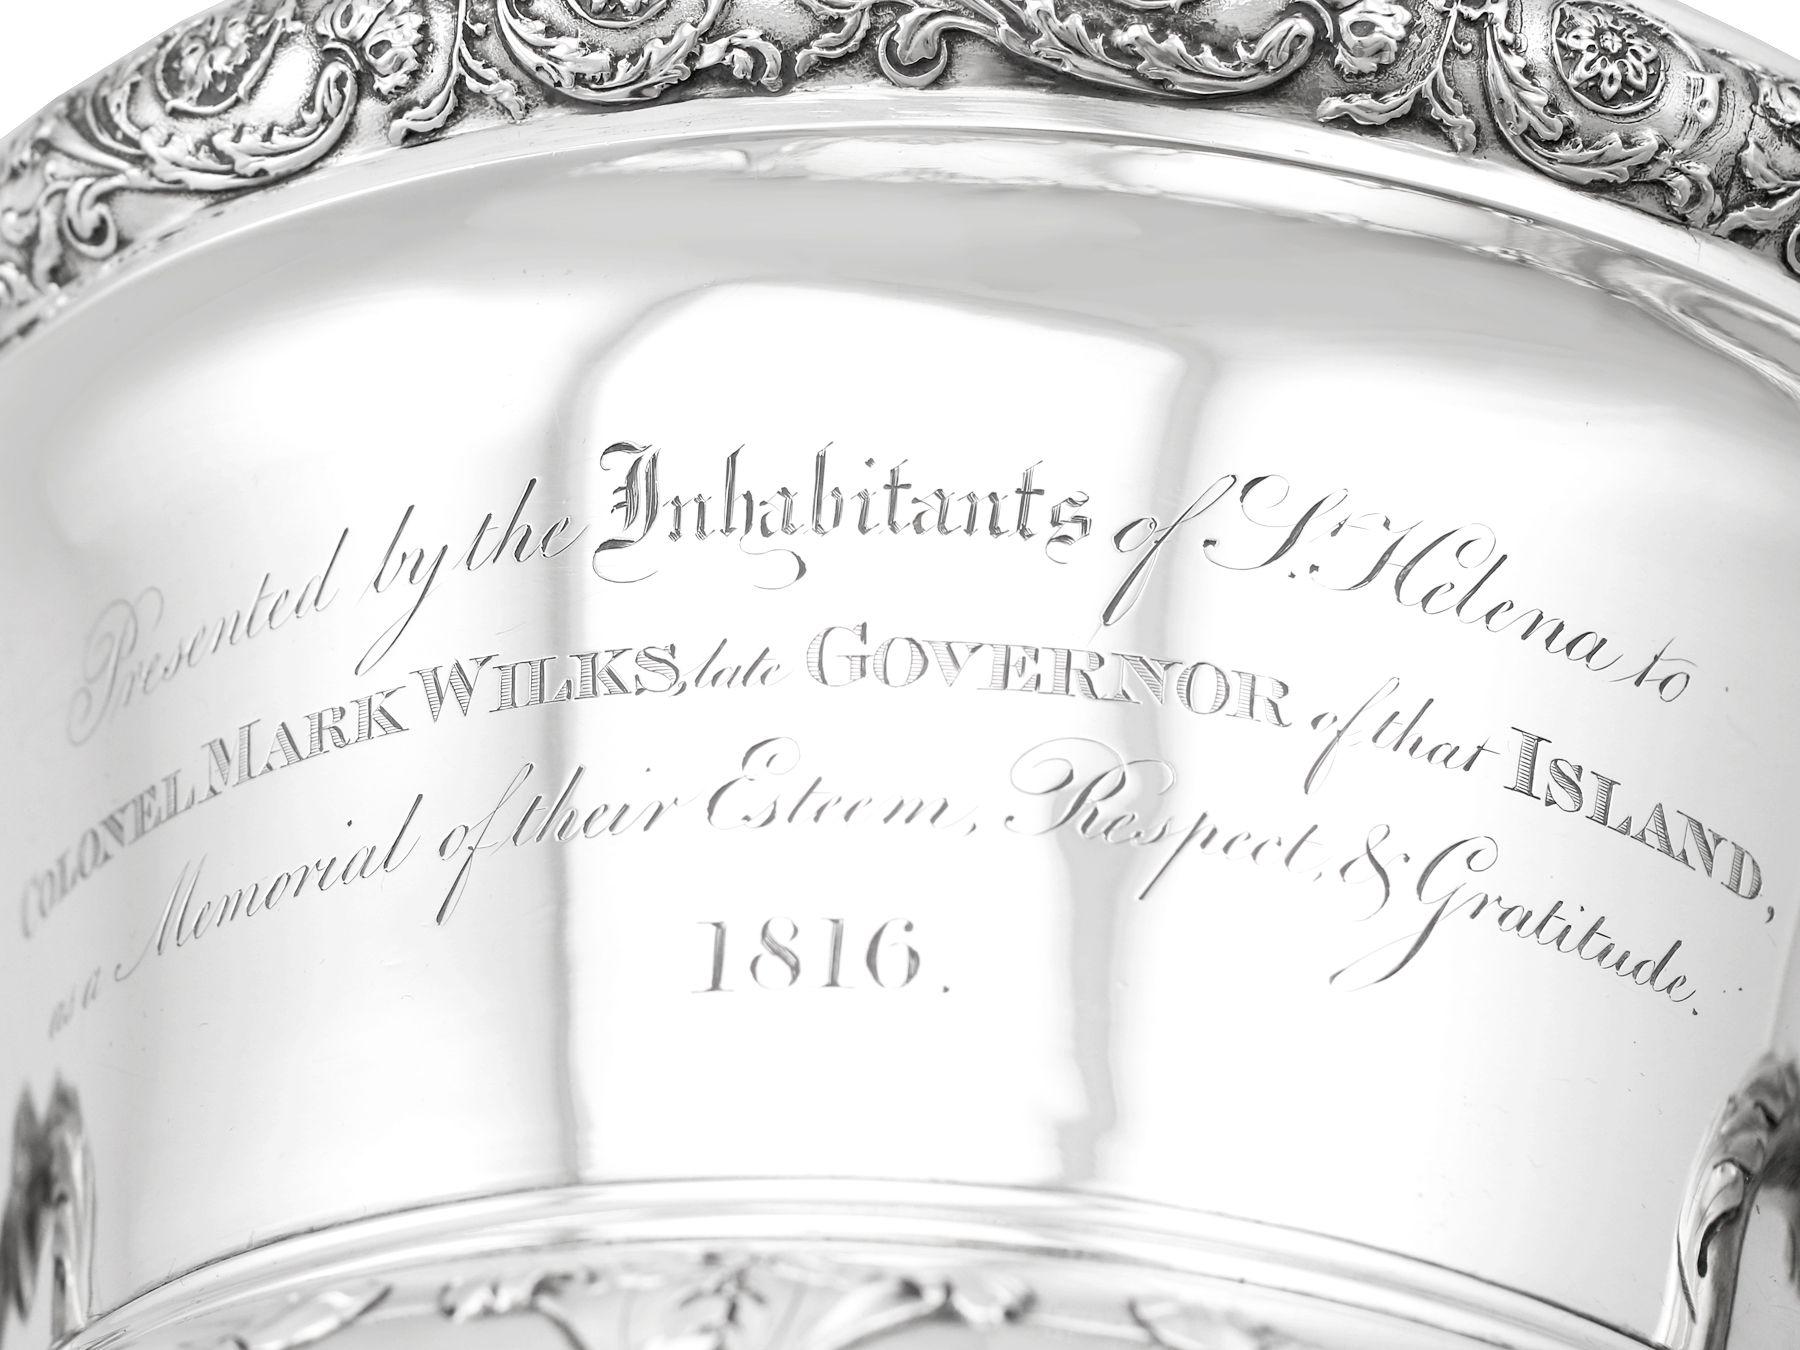 Presented by the Inhabitants of St. Helena to
COLONEL MARK WILKS, late GOVERNOR of that ISLAND,
as a Memorial of their Esteem, Respect, & Gratitude.
1816.